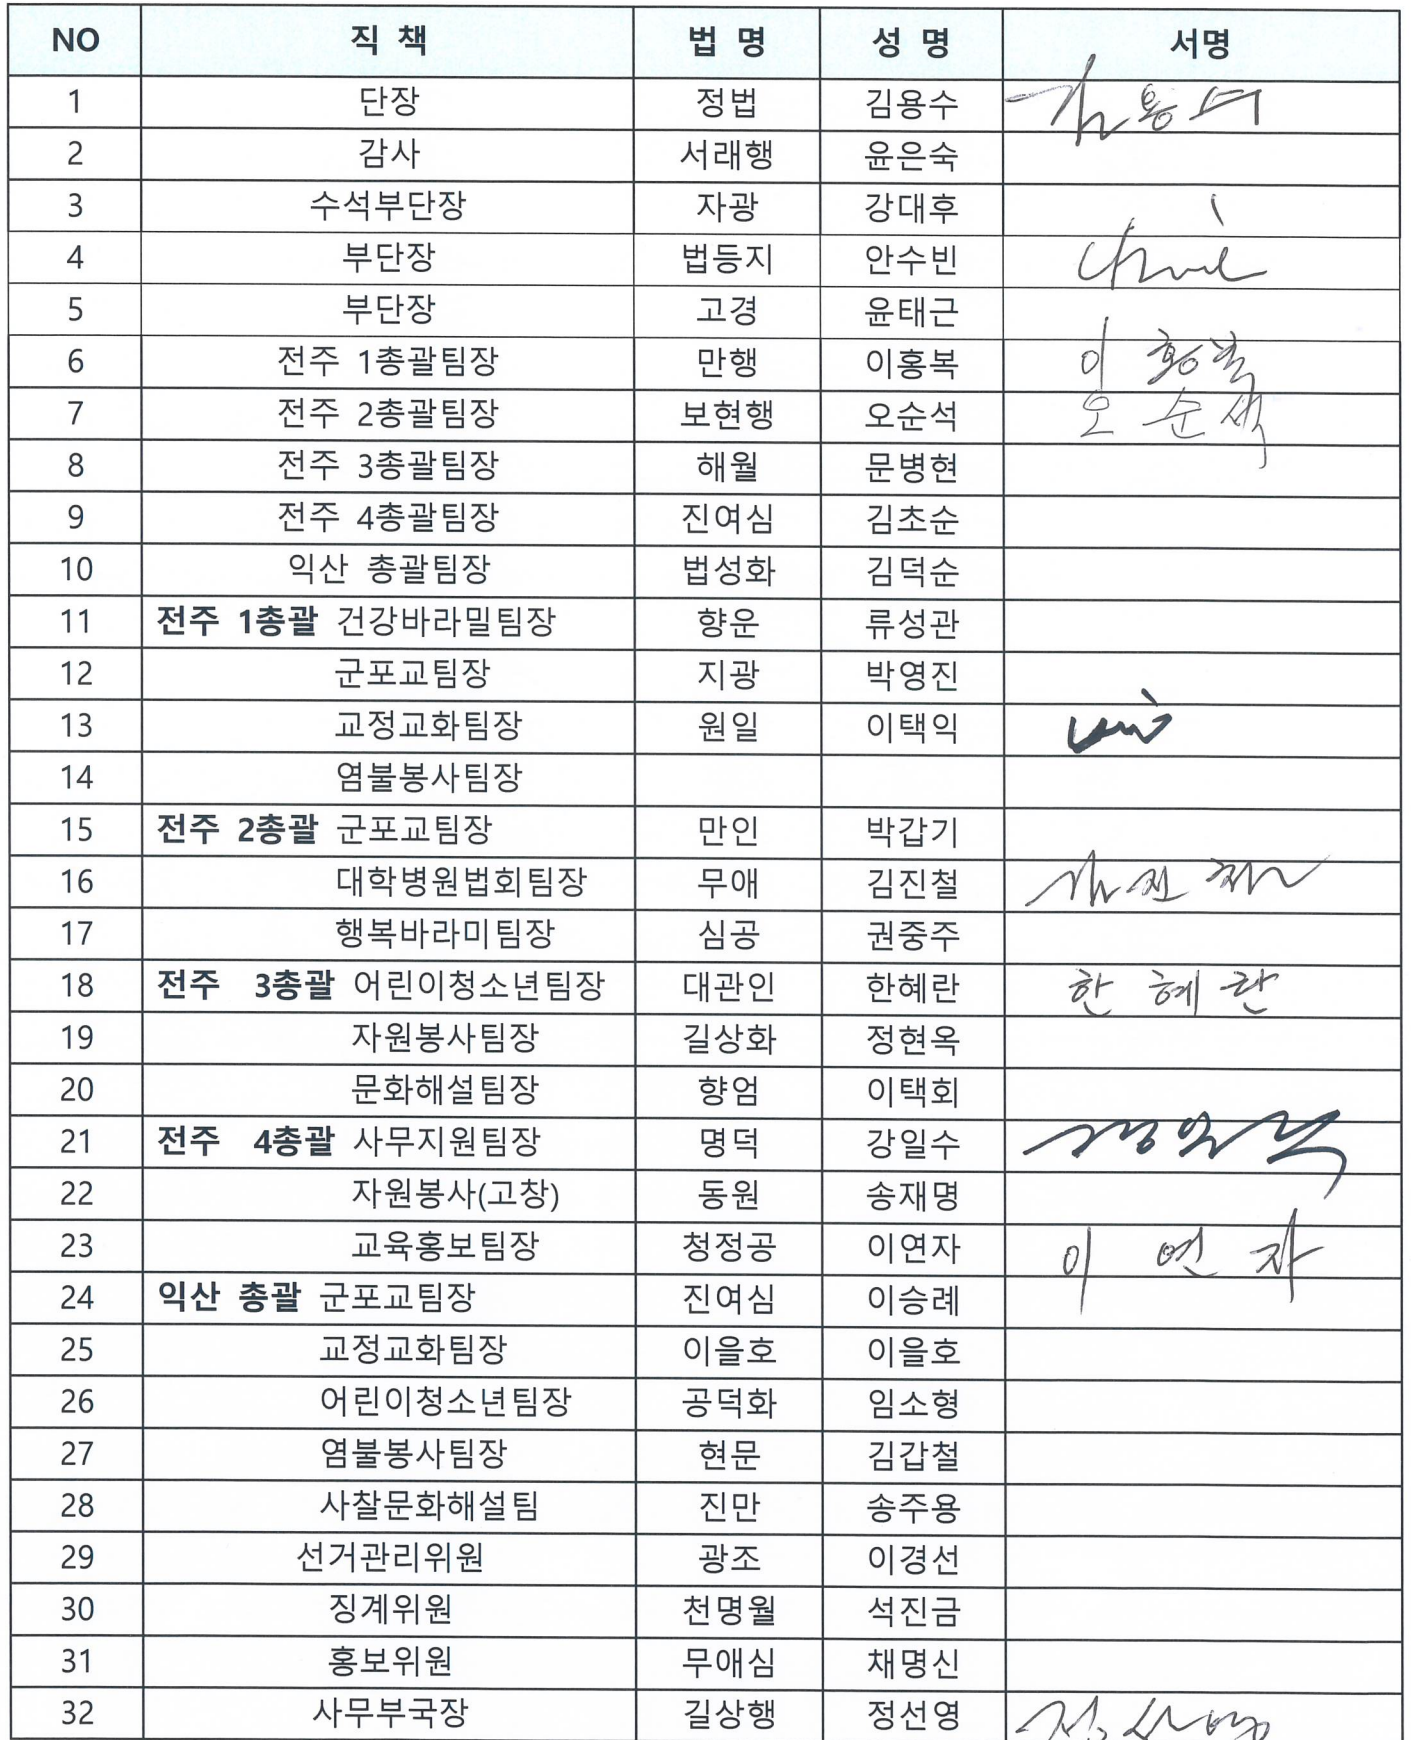 NO 직 책 법 명 성 명 서명
1 단장 정법 김용수 김용수
2 감사 서래행 윤은숙
3 수석부단장 자광 강대후
4 부단장 법등지 안수빈
5 부단장 고경 윤태근
6 전주 1총괄팀장 만행 이홍복 이홍복
7 전주 2총괄팀장 보현행 오순석 오순석
8 전주 3총괄팀장 해월 문병현
9 전주 4총괄팀장 진여심 김초순
10 익산 총괄팀장 법성화 김덕순
11 전주 1총괄 건강바라밀팀장 향운 류성관
12 군포교팀장 지광 박영진
13 교정교화팀장 원일 이택익
14 염불봉사팀장
15 전주 2총괄 군포교팀장 만인 박갑기
16 대학병원법회팀장 무애 김진철 김진철
17 행복바라미팀장 심공 권중주
18 전주 3총괄 어린이청소년팀장 대관인 한혜란 한혜란
19 자원봉사팀장 길상화 정현옥
20 문화해설팀장 향엄 이택회
21 전주 4총괄 사무지원팀장 명덕 강일수 강일수
22 자원봉사(고창) 동원 송재명
23 교육홍보팀장 청정공 이연자 이연자
24 익산 총괄 군포교팀장 진여심 이승례
25 교정교화팀장 이을호 이을호
26 어린이청소년팀장 공덕화 임소형
27 염불봉사팀장 현문 김갑철
28 사찰문화해설팀 진만 송주용
29 선거관리위원 광조 이경선
30 징계위원 천명월 석진금
31 홍보위원 무애심 채명신
32 사무부국장 길상행 정선영 정선영